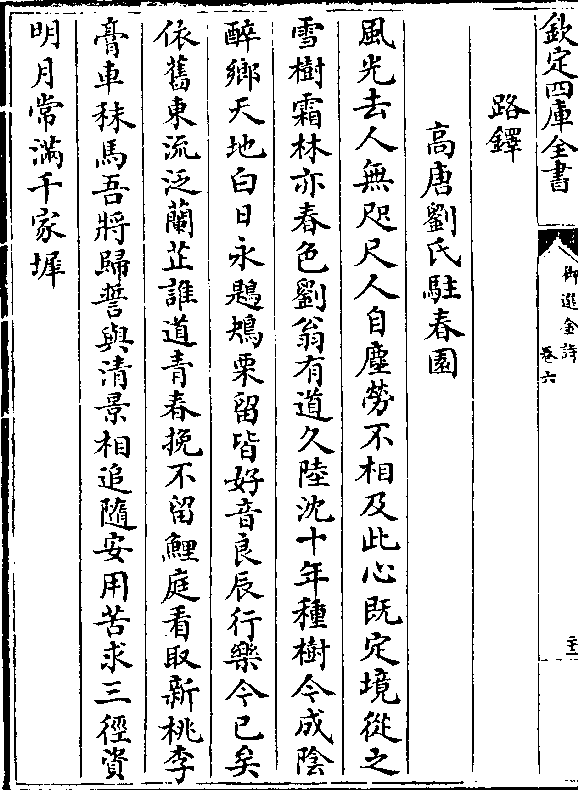 欽定四庫全書
御選金詩
卷六
路鐸
高唐劉氏駐春園
風光去人無咫尺人自塵勞不相及此心既定境從之
雪樹霜林亦春色劉翁有道久陸沈十年種樹今成陰
醉鄉天地白日永鶗鴂栗留皆好音良辰行樂今已矣
依舊東流泛蘭芷誰道青春挽不留鯉庭看取新桃李
膏車秣馬吾將歸誓與清景相追隨安用苦求三徑資
明月常滿千家墀